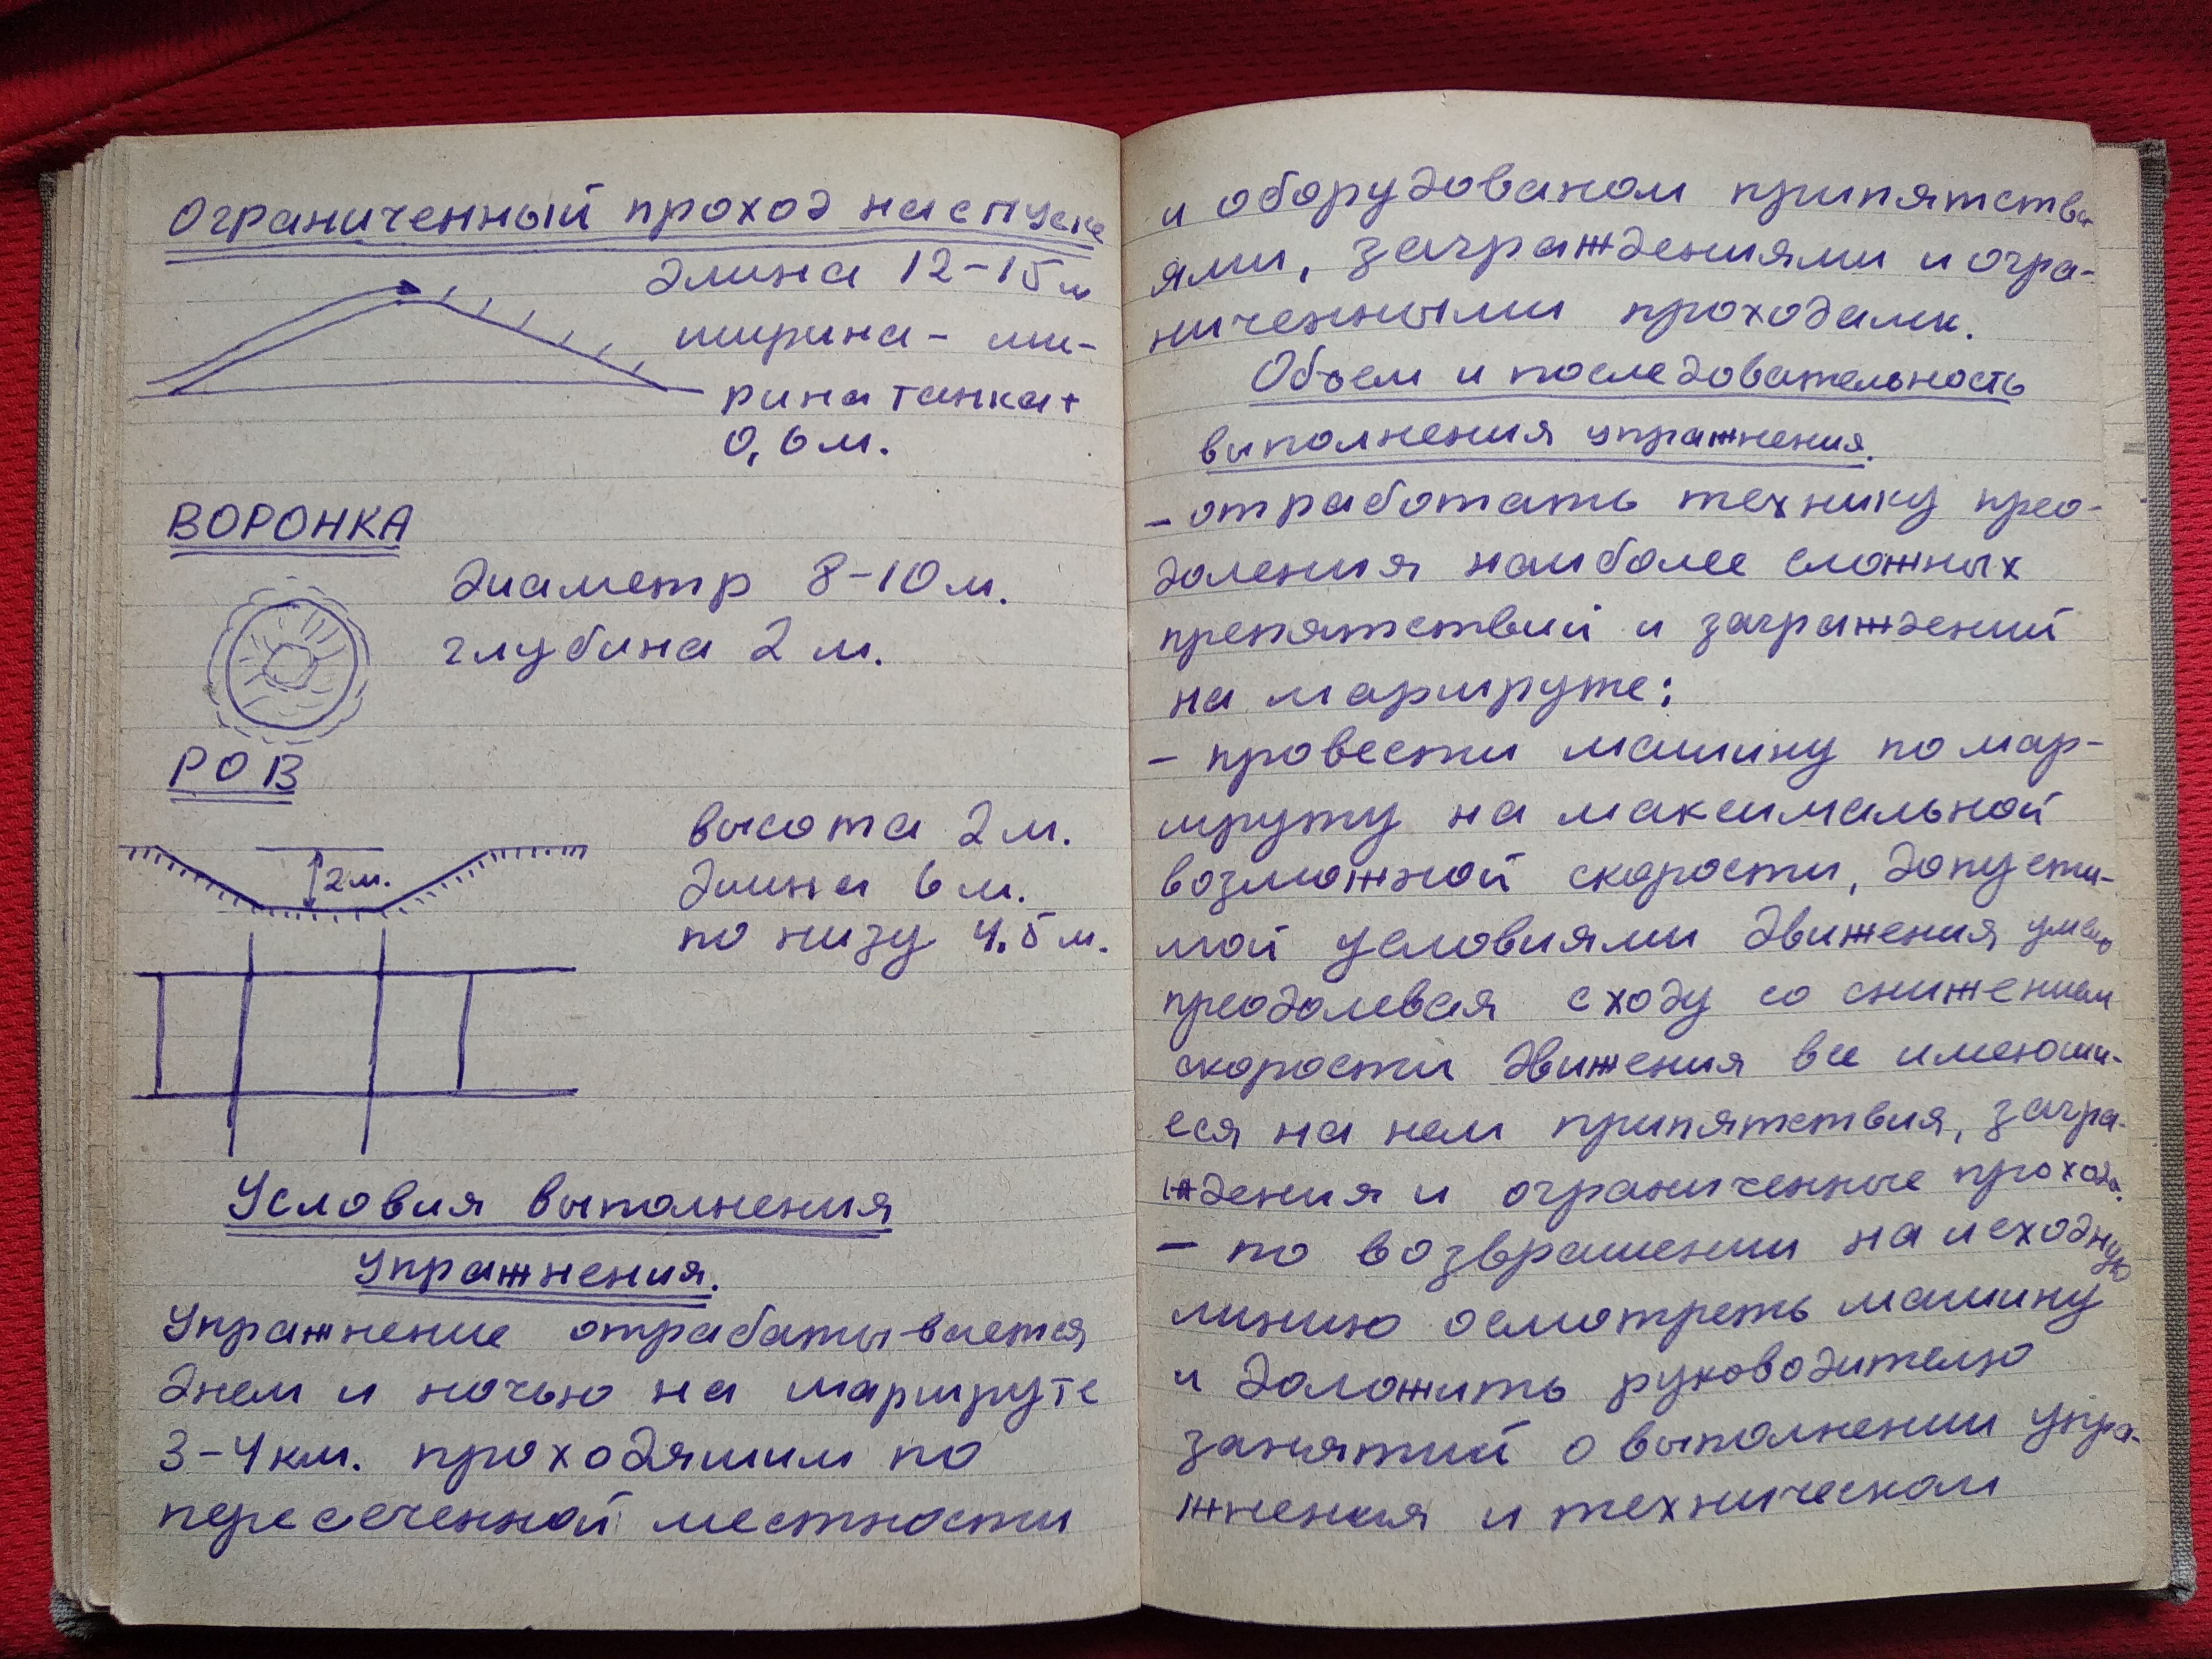 Ограниченный проход на спуске
длина 12-15 м
ширина - ши-
рина танка +
0,6 м.
ВОРОНКА
диаметр 8-10 м.
глубина 2 м.
РОВ
высота 2 м.
2 м.
длина 6 м.
по низу 4,5 м.
Условия выполнения
упражнения.
Упражнение отрабатывается
днем и ночью на маршруте
3-4 км. проходяшим по
пересеченной местности
и оборудованом припятстви
ями, заграждениями и огра-
ниченными проходами.
Объем и последовательность
выполнения упражнения.
- отработать технику прео-
доления наиболее сложных
препятствий и заграждений
на маршруте;
- провести машину по мар-
шруту на максимальной
возможной скорости, допусти-
мой условиями движения умело
преодолевая с ходу со снижением
скорости движения все имеюши-
еся на нем припятствия, загра-
ждения и ограниченные проходы.
- по возврашении на исходную
линию осмотреть машину
и доложить руководителю
занятий о выполнении упра-
жнения и техническом